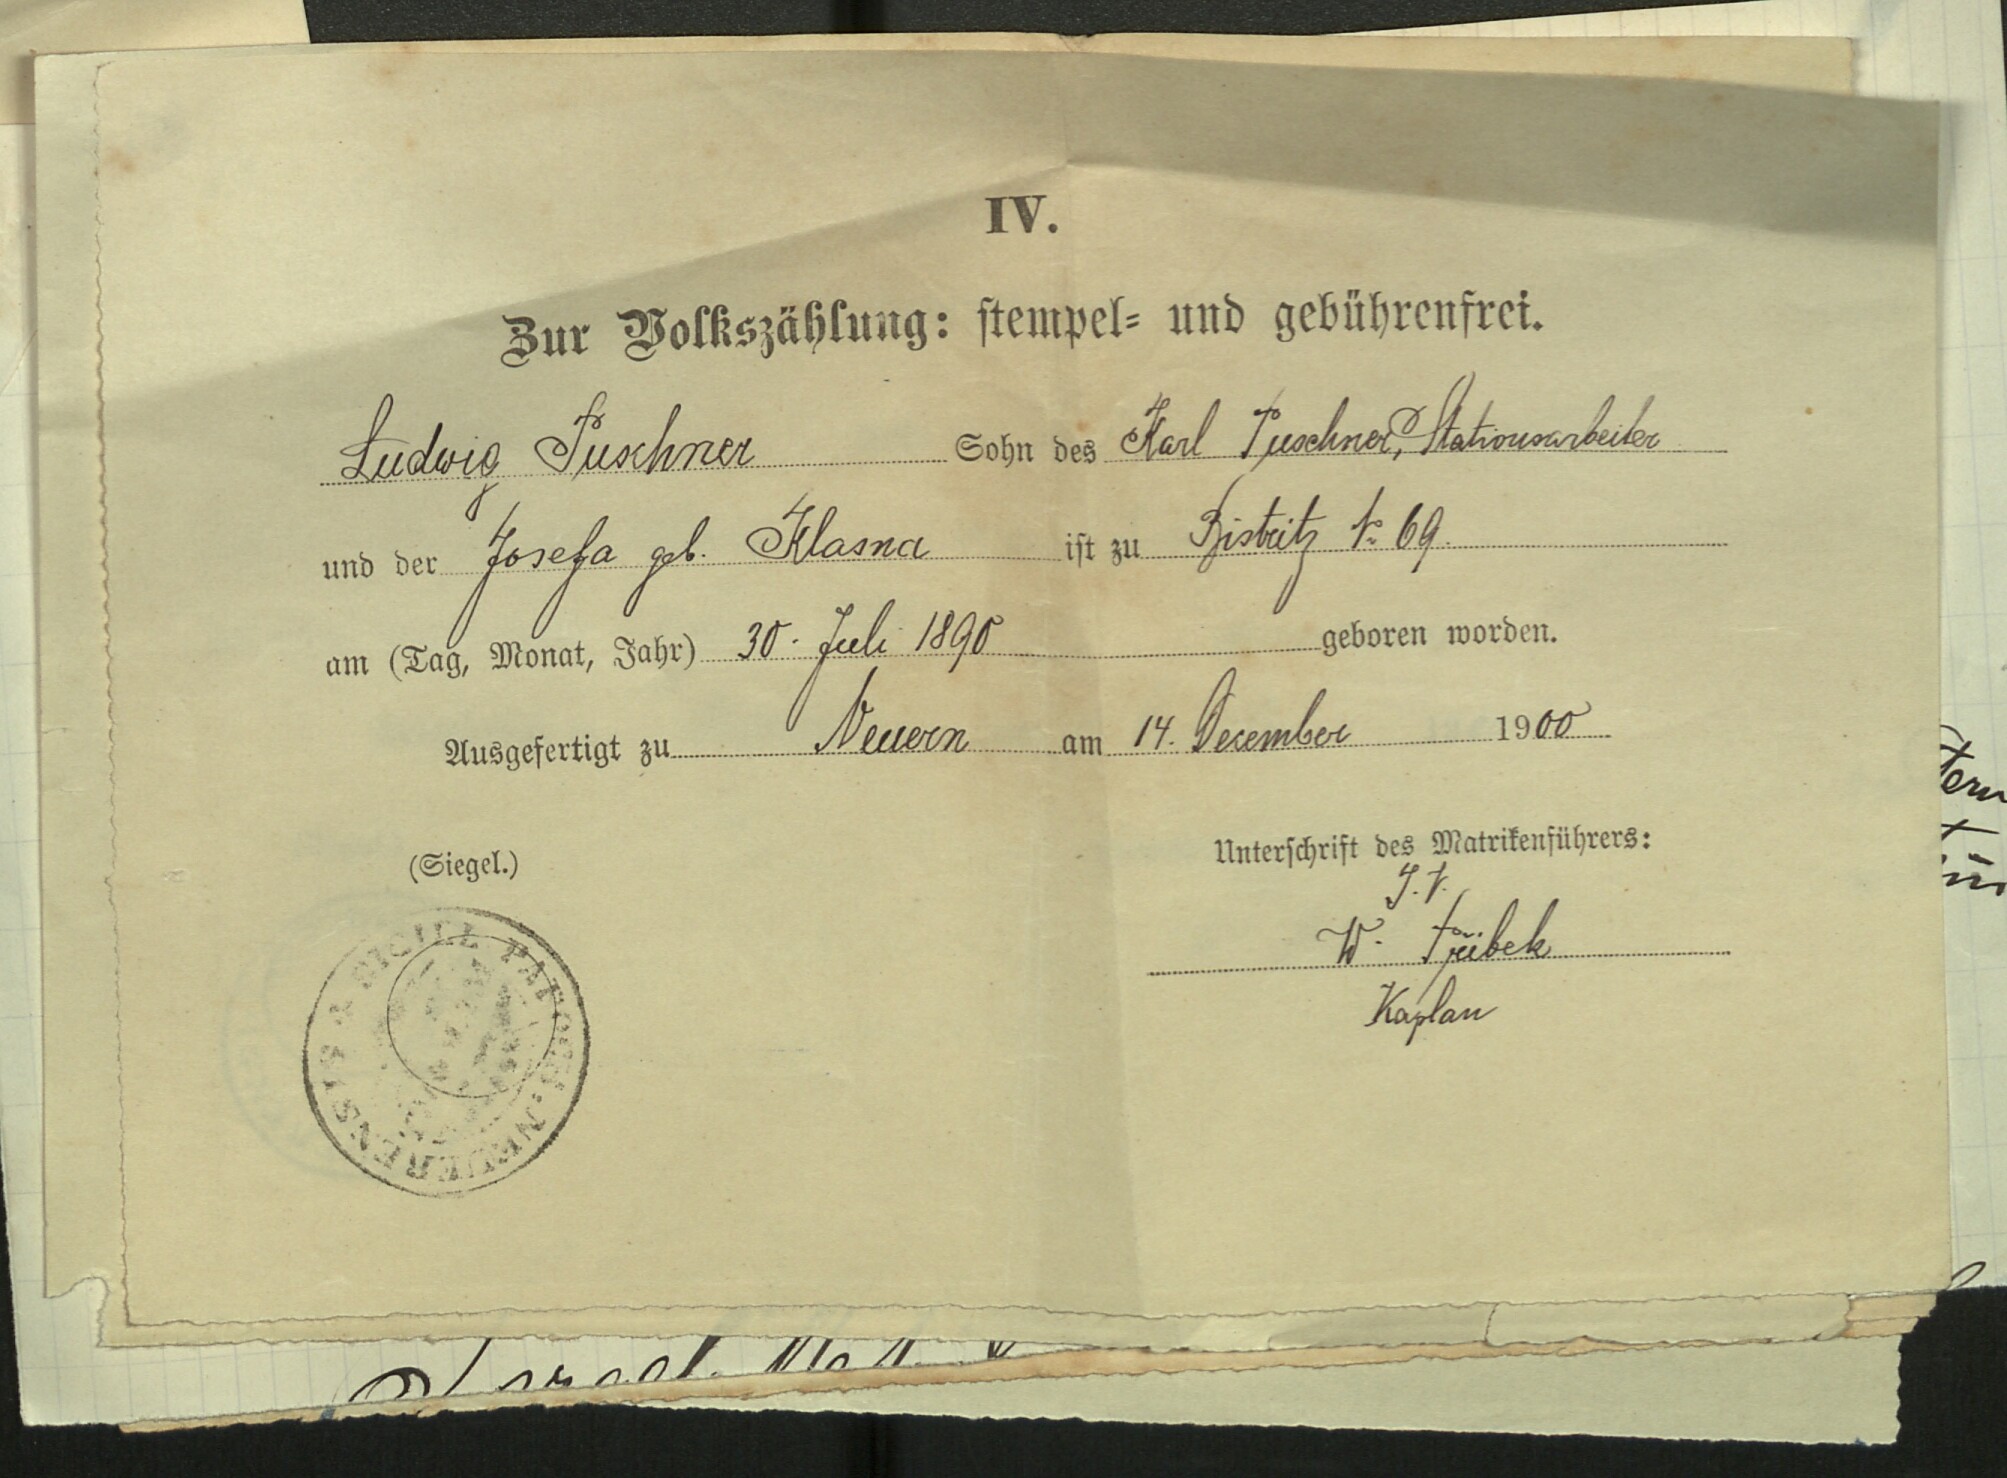 IV.
Zur Volkszählung: stempel- und gebührenfrei.
Ludwig Puschner Sohn des Karl Puschner, Stationsarbeiter
und der Josefa geb. Klasna ist zu Bistritz N. 69.
am (Tag, Monat, Jahr) 30. Juli 1890 geboren worden.
Ausgefertigt zu Neuern am 14. December 1900
(Siegel.)
Unterschrift des Matrikenführers:
I. V.
W.
Kaplan
SIGILL PAROCH: NEUERENSIS